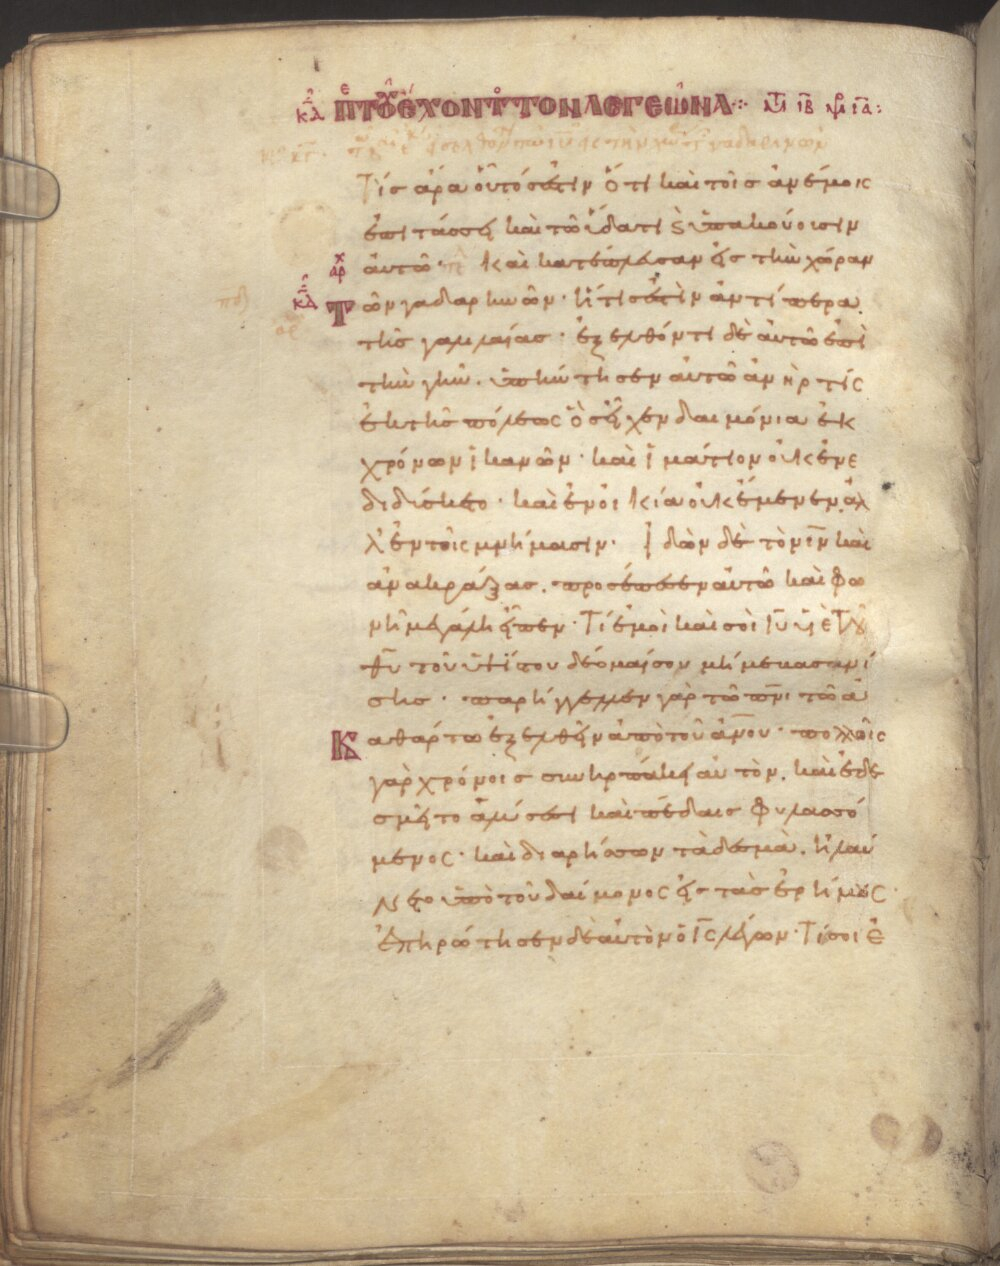 κδ περὶ τοῦ ἔχοντος τὸν λεγεῶνα
Τίς ἄρα οὗτός ἐστιν ὅτι καὶ τοῖς ἀνέμοις
ἐπιτάσσει καὶ τῶ ὕδατι ϗ ὑπακούουσιν
ἀρχ αὐτῶ· Καὶ κατέπλευσαν εἰς τὴν χώραν
κδ Τῶν γαδαρηνῶν· ἥτις ἐστὶν ἀντίπερα
τῆς γαλιλαίας· ἐξελθόντι δὲ αὐτῶ ἐπὶ
τὴν γῆν. ὑπήντησεν αὐτῶ ἀνήρ τίς
ἐκ τῆς πόλεως ὃς εἶχεν δαιμόνια ἐκ
χρόνων ἱκανῶν· καὶ ἱμάτιον οὐκ ἐνε
διδύσκετο· καὶ ἐν οἰκία οὐκ ἔμενεν ἀλ
λ' ἐν τοῖς μνήμασιν· Ἰδὼν δὲ τὸν ιν καὶ
ἀνακράξας. προσέπεσεν αὐτῶ καὶ φω
νῆ μεγάλη εἶπεν· Τί ἐμοὶ καὶ σοὶ ιυ υἱὲ τοῦ
θυ τοῦ ὑψίστου δέομαί σου μή με βασανί
σης· παρήγγελλεν γὰρ τῶ πνι τῶ ἀ
Καθάρτω ἐξελθεῖν ἀπὸ τοῦ ανου· πολλοῖς
γὰρ χρόνοις συνηρπάκει αὐτὸν. καὶ ἐδε
σμεῖτο ἁλύσεσι καὶ πέδαις φυλασσό
μενος· καὶ διαρήσσων τὰ δεσμὰ. ἠλαύ
νετο ὑπὸ τοῦ δαίμονος εἰς τὰς ἐρήμους·
ἐπηρώτησεν δὲ αὐτὸν ὁ ις λέγων· Τί σοι ἐ